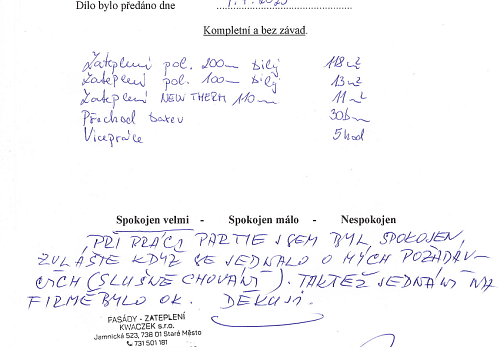 Dílo bylo předáno dne
Kompletní a bez závad.
Zateplení pol. 200mm bílý 118 m²
Zateplení pol. 100mm bílý 13 m²
Zateplení NEW THERM 110mm 11 m²
Přechod barev 30bm
Vícepráce 5hod
Spokojen velmi - Spokojen málo - Nespokojen
PŘI PRÁCI PARTIE JSEM BYL SPOKOJEN,
ZVLÁŠTĚ KDYŽ SE JEDNALO O MÝCH POŽADAV-
CÍCH (SLUŠNÉ CHOVÁNÍ). TAKTÉŽ JEDNÁNÍ NA
FIRMĚ BYLO OK. DĚKUJI.
FASÁDY - ZATEPLENÍ
KWACZEK s.r.o.
Jamnická 523, 738 01 Staré Město
731 501 181